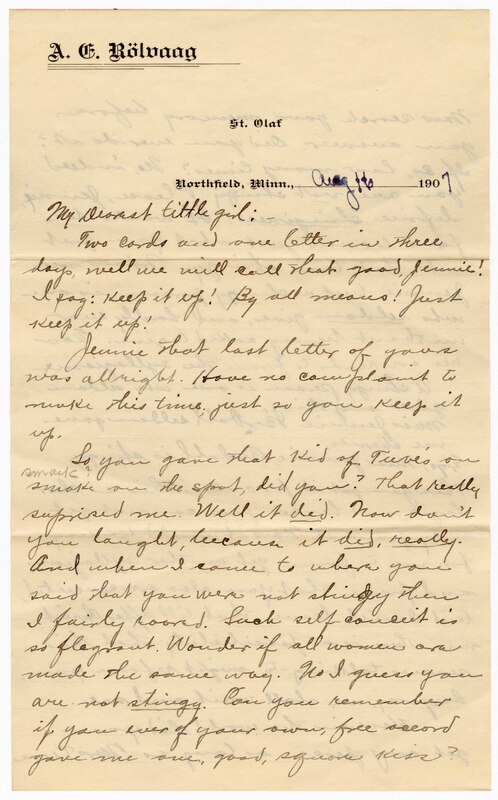 A. E. Rölvaag
St. Olaf
Northfield, Minn., Aug 16 1907
My Dearest little girl:-
Two cards and one letter in three
days, well we will call that good, Jennie!
I say: keep it up! By all means! Just
keep it up!
Jennie that last letter of yours
was allright. Have no complaint to
make this time, just so you keep it
up.
So you gave that kid of Tieve's on
smack?
smake on the spot, did you? That really
suprised me. Well it did. Now don't
you laught, because it did, really.
And when I came to where you
said that you were not stindgy then
I fairly roared. Such self conceit is
so flagrant. Wonder if all women are
made the same way. No I guess you
are not stingy. Can you remember
if you ever of your own, free accord
gave me one, good, square kiss?